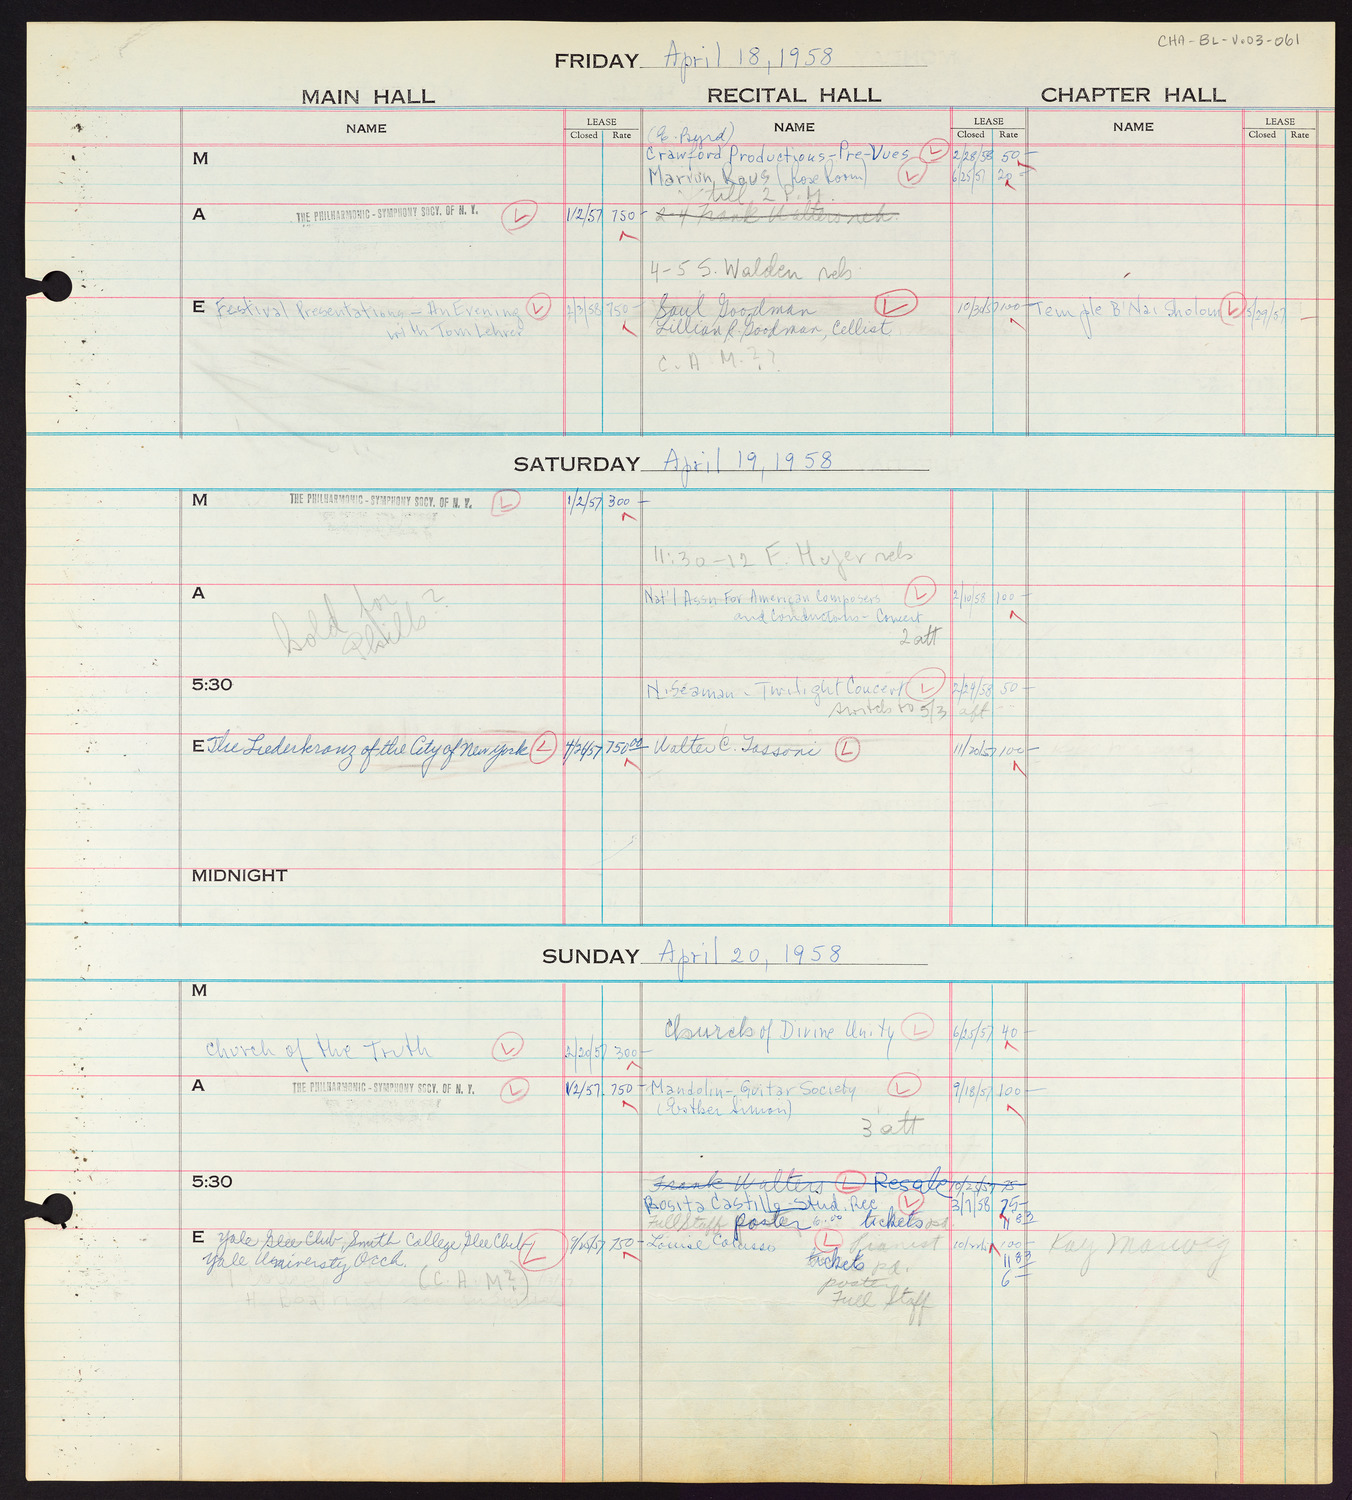 CHA-BL-V.03-061
FRIDAY April 18, 1958
MAIN HALL RECITAL HALL CHAPTER HALL
NAME LEASE Closed Rate NAME LEASE Closed Rate NAME LEASE Closed Rate
(E. Byrd)
M Crawford Productions-Pre-Vues L 2/28/58 50-
Marvin (Rose Room) L 6/25/57 20-
till 2 P.M.
A THE PHILHARMONIC-SYMPHONY SOCY. OF N. Y. L 1/2/57 750- 2-4 Frank Walters reh.
4-5 S. Walden reh
E Festival Presentations - An Evening L 2/3/58 750- Saul Goodman L 10/3/57 100- Temple B'Nai Sholom L 5/29/57 -
with Tom Lehrer Lillian R. Goodman, Cellist
C. A. M.??
SATURDAY April 19, 1958
M THE PHILHARMONIC-SYMPHONY SOCY. OF N. Y. L 1/2/57 300-
11:30-12 F. reh
A Nat'l Assn For American Composers L 2/10/58 100-
and Conductors - Concert
hold for Phills? 2 att
5:30 N. Seaman - Twilight Concert L 2/29/58 50-
switch to 5/3 aft
E The Liederkranz of the City of New York L 750.00 Walter C. Tassoni L 11/20/57 100-
MIDNIGHT
SUNDAY April 20, 1958
M
Church of Divine Unity L 6/25/57 40-
Church of the Truth L 2/20/57 300-
A THE PHILHARMONIC-SYMPHONY SOCY. OF N. Y. L 1/2/57 750- Mandolin-Guitar Society L 9/18/57 100-
(Esther Simon)
3 att
5:30 Frank Walters L Resale 10/25/57 75-
Rosita Castillo Stud. Rec L 3/7/58 75-
Full Staff poster 6.00 tickets pd 11 83
E Yale Glee Club, Smith College Glee Club L 750- Louise Caruso L pianist 100- Kay
Yale University Orch. tickets pd. 11 83
(C. A. M?) poster 6-
Full Staff